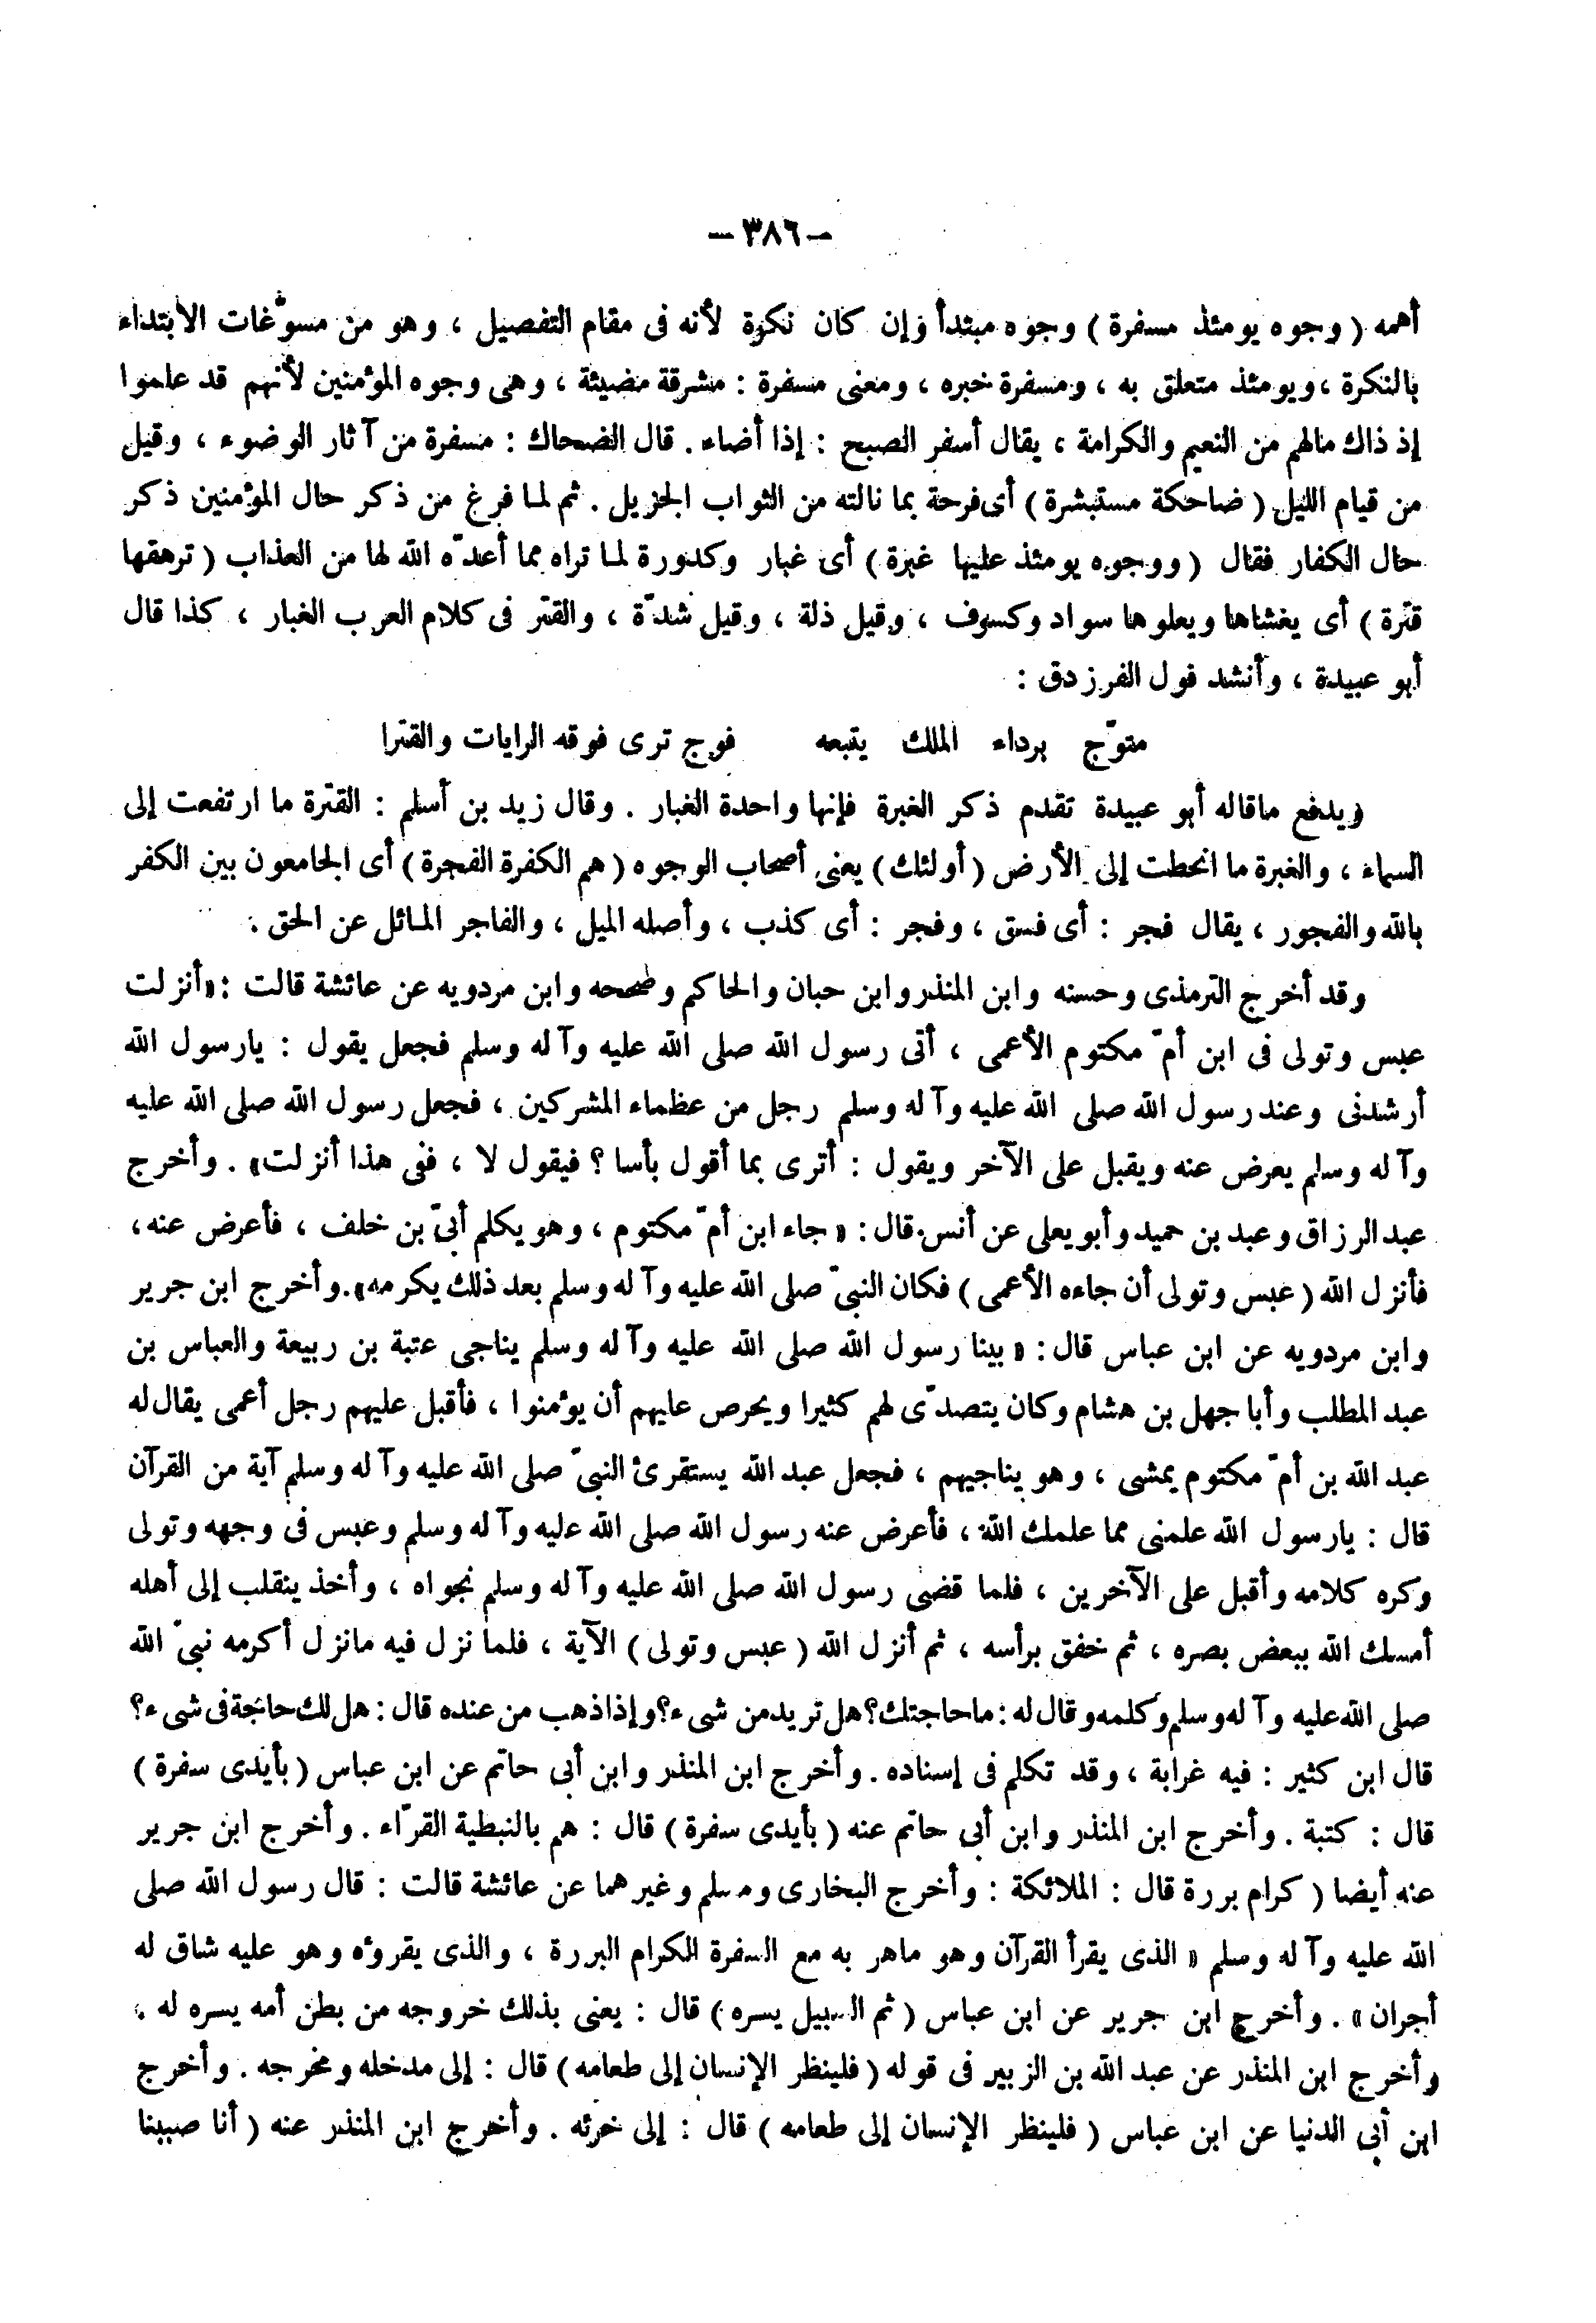 — ٣٨٦ —
أهمه ( وجوه يومئذ مسفرة ) وجوه مبتدأ وإن كان نكرة لأنه فى مقام التفصيل ، وهو من مسوّغات الابتداء
بالنكرة ، ويومئذ متعلق به ، ومسفرة خبره ، ومعنى مسفرة : مشرقة مضيئة ، وهى وجوه المؤمنين لأنهم قد علموا
إذ ذاك مالهم من النعيم والكرامة ، يقال أسفر الصبح : إذا أضاء . قال الضحاك : مسفرة من آثار الوضوء ، وقيل
من قيام الليل ( ضاحكة مستبشرة ) أى فرحة بما نالته من الثواب الجزيل . ثم لما فرغ من ذكر حال المؤمنين ذكر
حال الكفار فقال ( ووجوه يومئذ عليها غبرة ) أى غبار وكدورة لما تراه مما أعدّه الله لها من العذاب ( ترهقها
قترة ) أى يغشاها ويعلوها سواد وكسوف ، وقيل ذلة ، وقيل شدّة ، والقتر فى كلام العرب الغبار ، كذا قال
أبو عبيدة ، وأنشد قول الفرزدق :
متوّج برداء الملك يتبعه فوج ترى فوقه الرايات والقترا
ويدفع ماقاله أبو عبيدة تقدم ذكر الغبرة فإنها واحدة الغبار . وقال زيد بن أسلم : القترة ما ارتفعت إلى
السماء ، والغبرة ما انحطت إلى الأرض ( أولئك ) يعنى أصحاب الوجوه ( هم الكفرة الفجرة ) أى الجامعون بين الكفر
بالله والفجور ، يقال فجر : أى فسق ، وفجر : أى كذب ، وأصله الميل ، والفاجر المائل عن الحق .
وقد أخرج الترمذى وحسنه وابن المنذر وابن حبان والحاكم وصححه وابن مردويه عن عائشة قالت : «أنزلت
عبس وتولى فى ابن أمّ مكتوم الأعمى ، أتى رسول الله صلى الله عليه وآله وسلم فجعل يقول : يارسول الله
أرشدنى وعند رسول الله صلى الله عليه وآله وسلم رجل من عظماء المشركين ، فجعل رسول الله صلى الله عليه
وآله وسلم يعرض عنه ويقبل على الآخر ويقول : أترى بما أقول بأسا ؟ فيقول لا ، ففى هذا أنزلت» . وأخرج
عبد الرزاق وعبد بن حميد وأبو يعلى عن أنس قال : « جاء ابن أمّ مكتوم ، وهو يكلم أبىّ بن خلف ، فأعرض عنه ،
فأنزل الله ( عبس وتولى أن جاءه الأعمى ) فكان النبىّ صلى الله عليه وآله وسلم بعد ذلك يكرمه» . وأخرج ابن جرير
وابن مردويه عن ابن عباس قال : « بينا رسول الله صلى الله عليه وآله وسلم يناجى عتبة بن ربيعة والعباس بن
عبد المطلب وأبا جهل بن هشام وكان يتصدّى لهم كثيرا ويحرص عليهم أن يؤمنوا ، فأقبل عليهم رجل أعمى يقال له
عبد الله بن أمّ مكتوم يمشى ، وهو يناجيهم ، فجعل عبد الله يستقرئ النبىّ صلى الله عليه وآله وسلم آية من القرآن
قال : يارسول الله علمنى مما علمك الله ، فأعرض عنه رسول الله صلى الله عليه وآله وسلم وعبس فى وجهه وتولى
وكره كلامه وأقبل على الآخرين ، فلما قضى رسول الله صلى الله عليه وآله وسلم نجواه ، وأخذ ينقلب إلى أهله
أمسك الله ببعض بصره ، ثم خفق برأسه ، ثم أنزل الله ( عبس وتولى ) الآية ، فلما نزل فيه مانزل أكرمه نبىّ الله
صلى الله عليه وآله وسلم وكلمه وقال له : ما حاجتك ؟ هل تريد من شىء ؟ وإذا ذهب من عنده قال : هل لك حاجة فى شىء ؟
قال ابن كثير : فيه غرابة ، وقد تكلم فى إسناده . وأخرج ابن المنذر وابن أبى حاتم عن ابن عباس ( بأيدى سفرة )
قال : كتبة . وأخرج ابن المنذر وابن أبى حاتم عنه ( بأيدى سفرة ) قال : هم بالنبطية القرّاء . وأخرج ابن جرير
عنه أيضا ( كرام بررة قال : الملائكة : وأخرج البخارى ومسلم وغيرهما عن عائشة قالت : قال رسول الله صلى
الله عليه وآله وسلم « الذى يقرأ القرآن وهو ماهر به مع السفرة الكرام البررة ، والذى يقرؤه وهو عليه شاق له
أجران» . وأخرج ابن جرير عن ابن عباس ( ثم السبيل يسره ) قال : يعنى بذلك خروجه من بطن أمه يسره له .
وأخرج ابن المنذر عن عبد الله بن الزبير فى قوله ( فلينظر الإنسان إلى طعامه ) قال : إلى مدخله ومخرجه . وأخرج
ابن أبى الدنيا عن ابن عباس ( فلينظر الإنسان إلى طعامه ) قال : إلى خرئه . وأخرج ابن المنذر عنه ( أنا صببنا